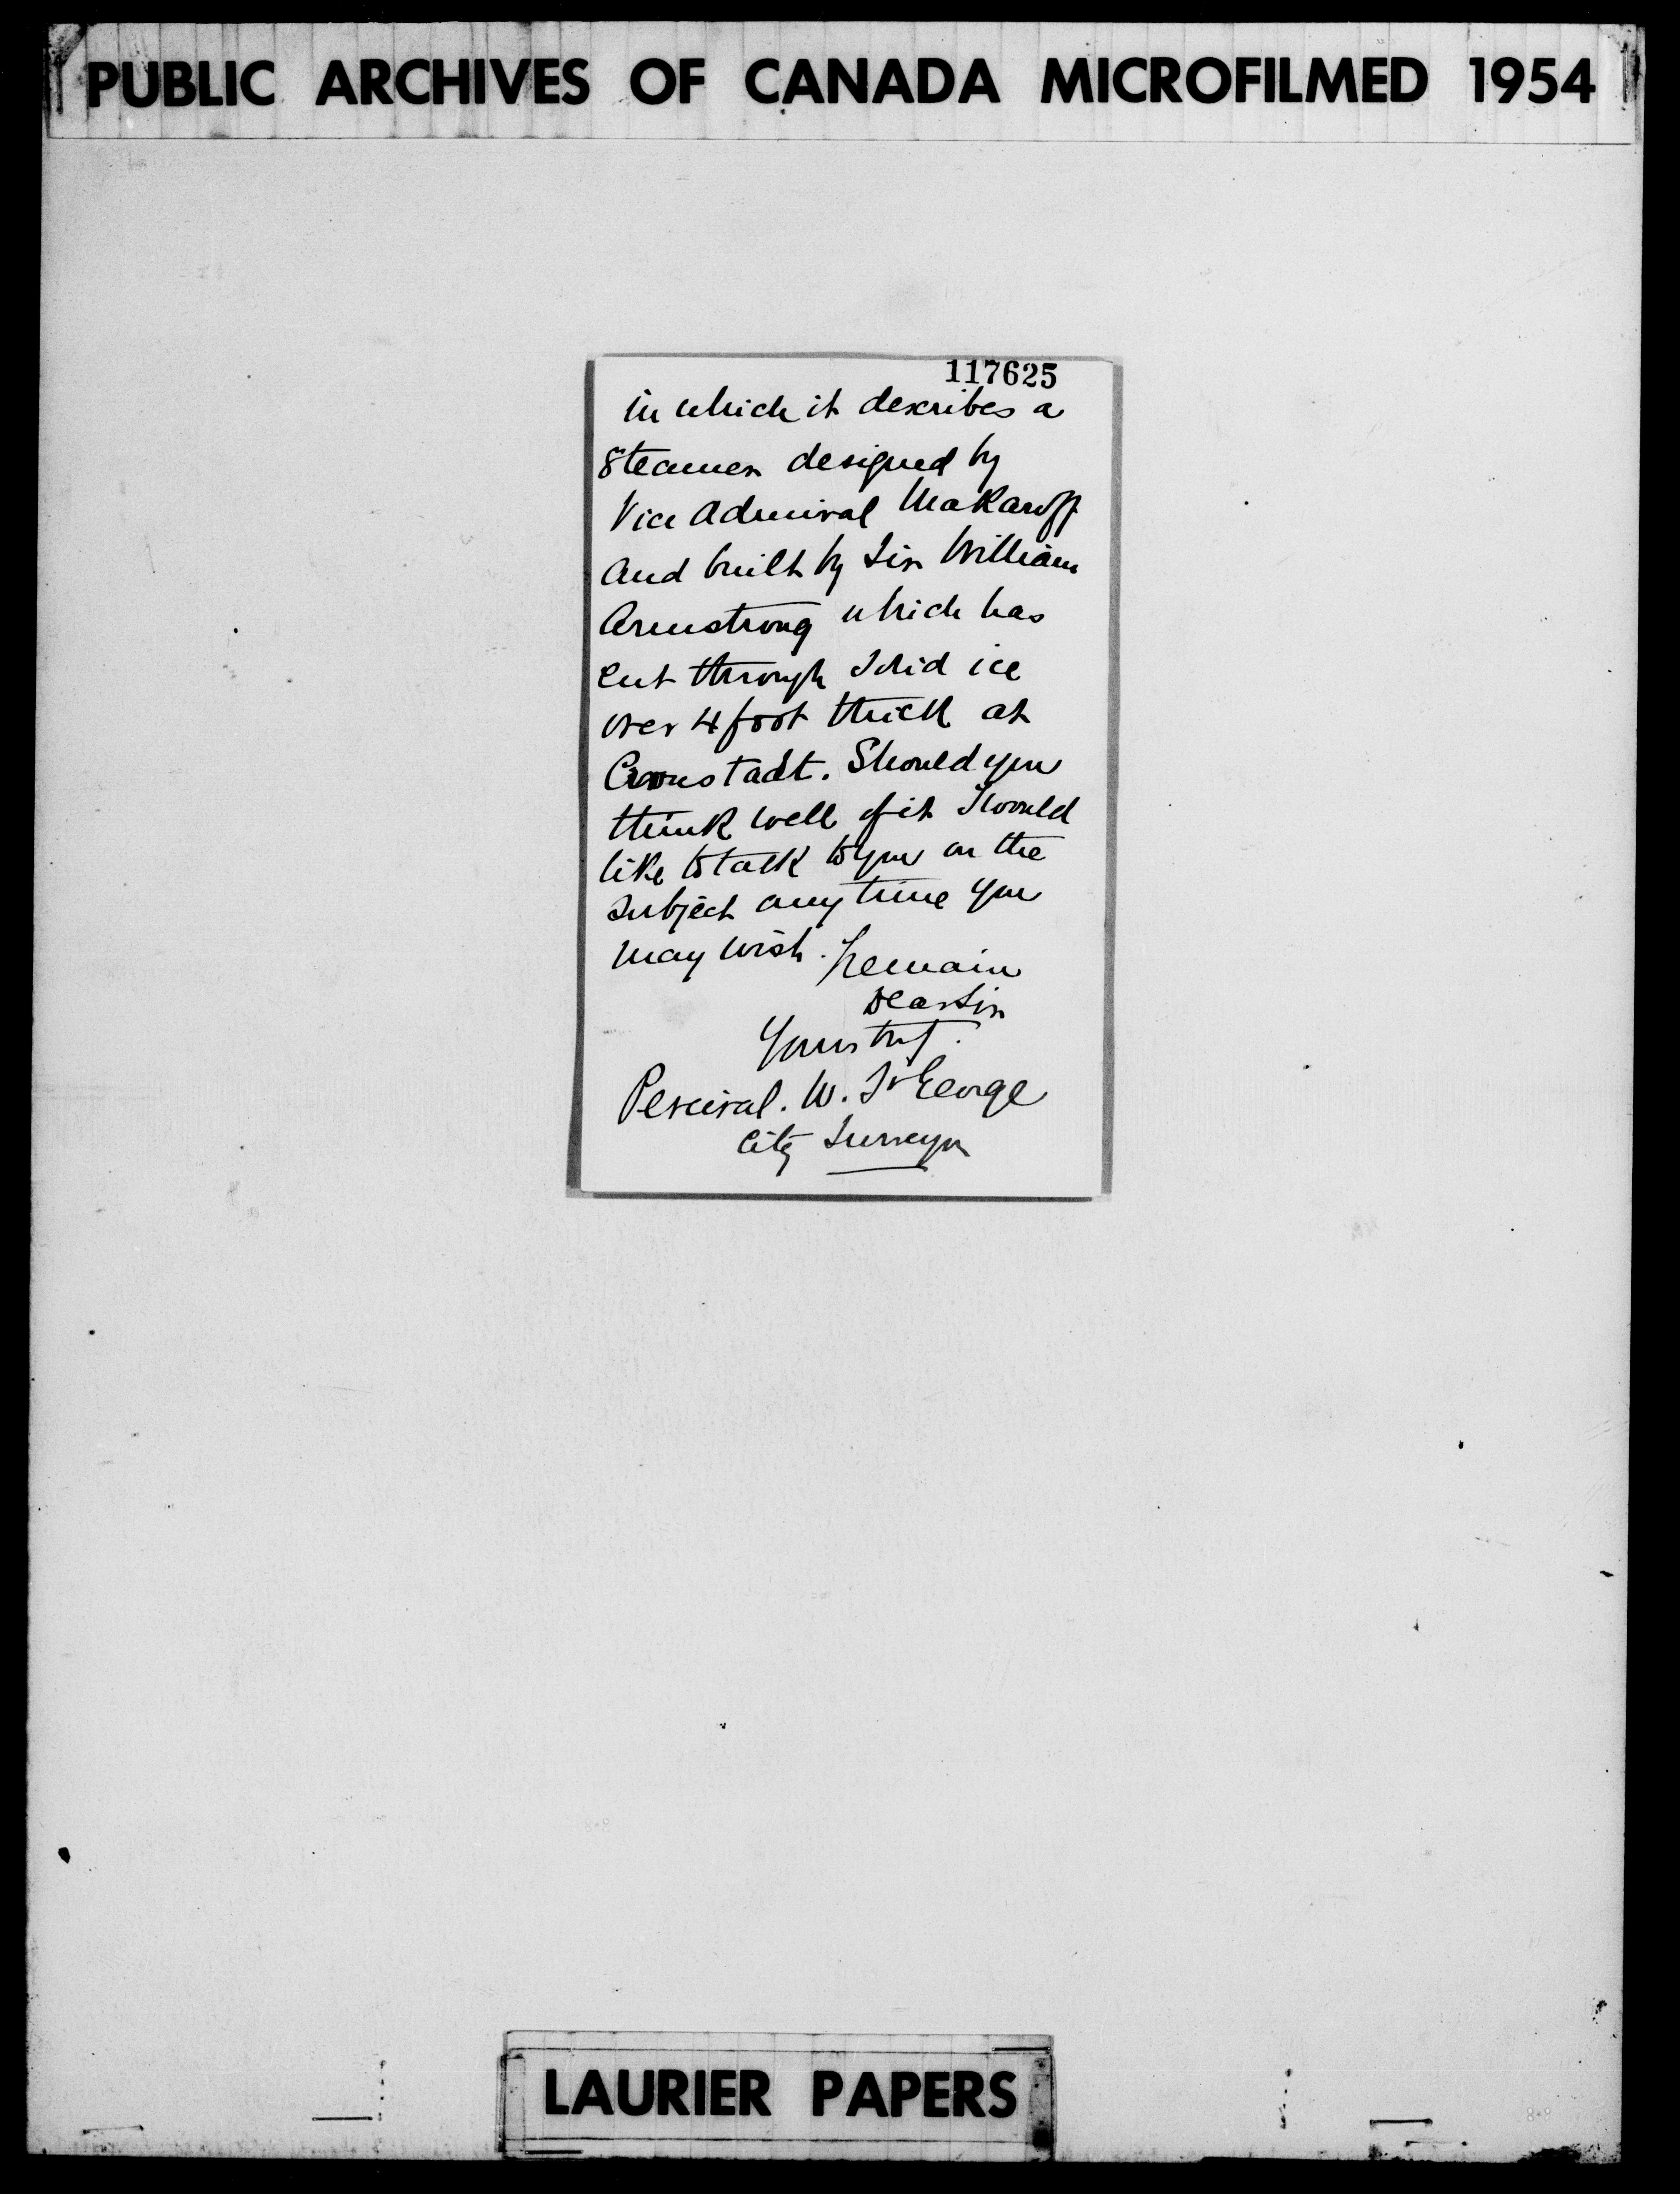 PUBLIC ARCHIVES OF CANADA MICROFILMED 1954
117625
in which it describes a
Steamer designed by
Vice Admiral Makaroff
And built by Sir William
Armstrong which has
cut through solid ice
over 4 foot thick at
Cronstadt. Should you
think well of it I would
like to talk to you on the
subject any time you
may wish. I remain
Dear Sir
Yours try.
Percival. W. St George
City Surveyor
LAURIER PAPERS